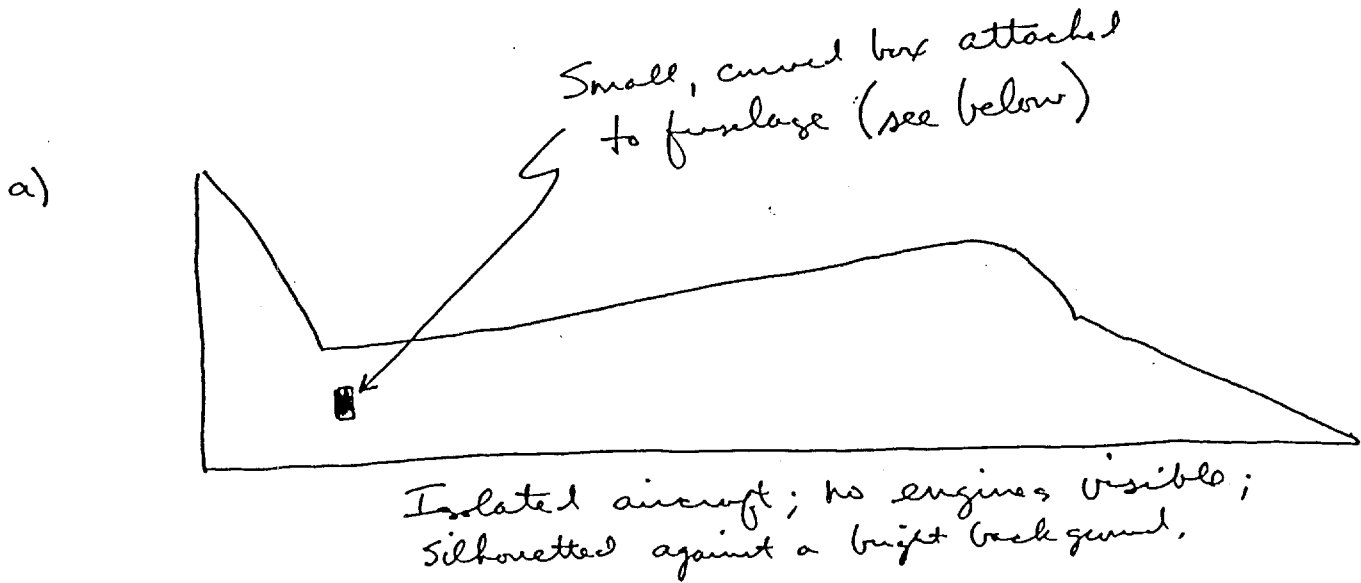 Small, curved box attached
to fuselage (see below)
a)
Isolated aircraft; no engines visible;
silhouetted against a bright background.